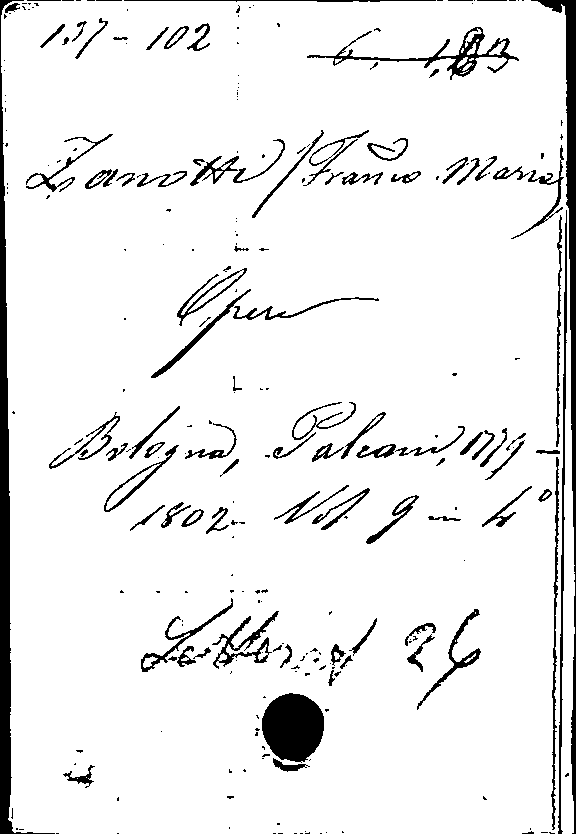 137-102
6. 1.B3
Zanotti (Franco Maria)
Opere
Bologna, Palcani, 1779-
1802- Vol 9 in 4°
26